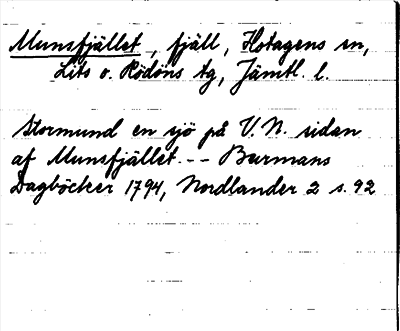 Munsfjället, fjäll, Hotagens sn,
Lits o. Rödöns tg, Jämtl. l.
Stormund en sjö på V. N. sidan
af Munsfjället. -- Burmans
Dagböcker 1794, Nordlander 2 s. 92